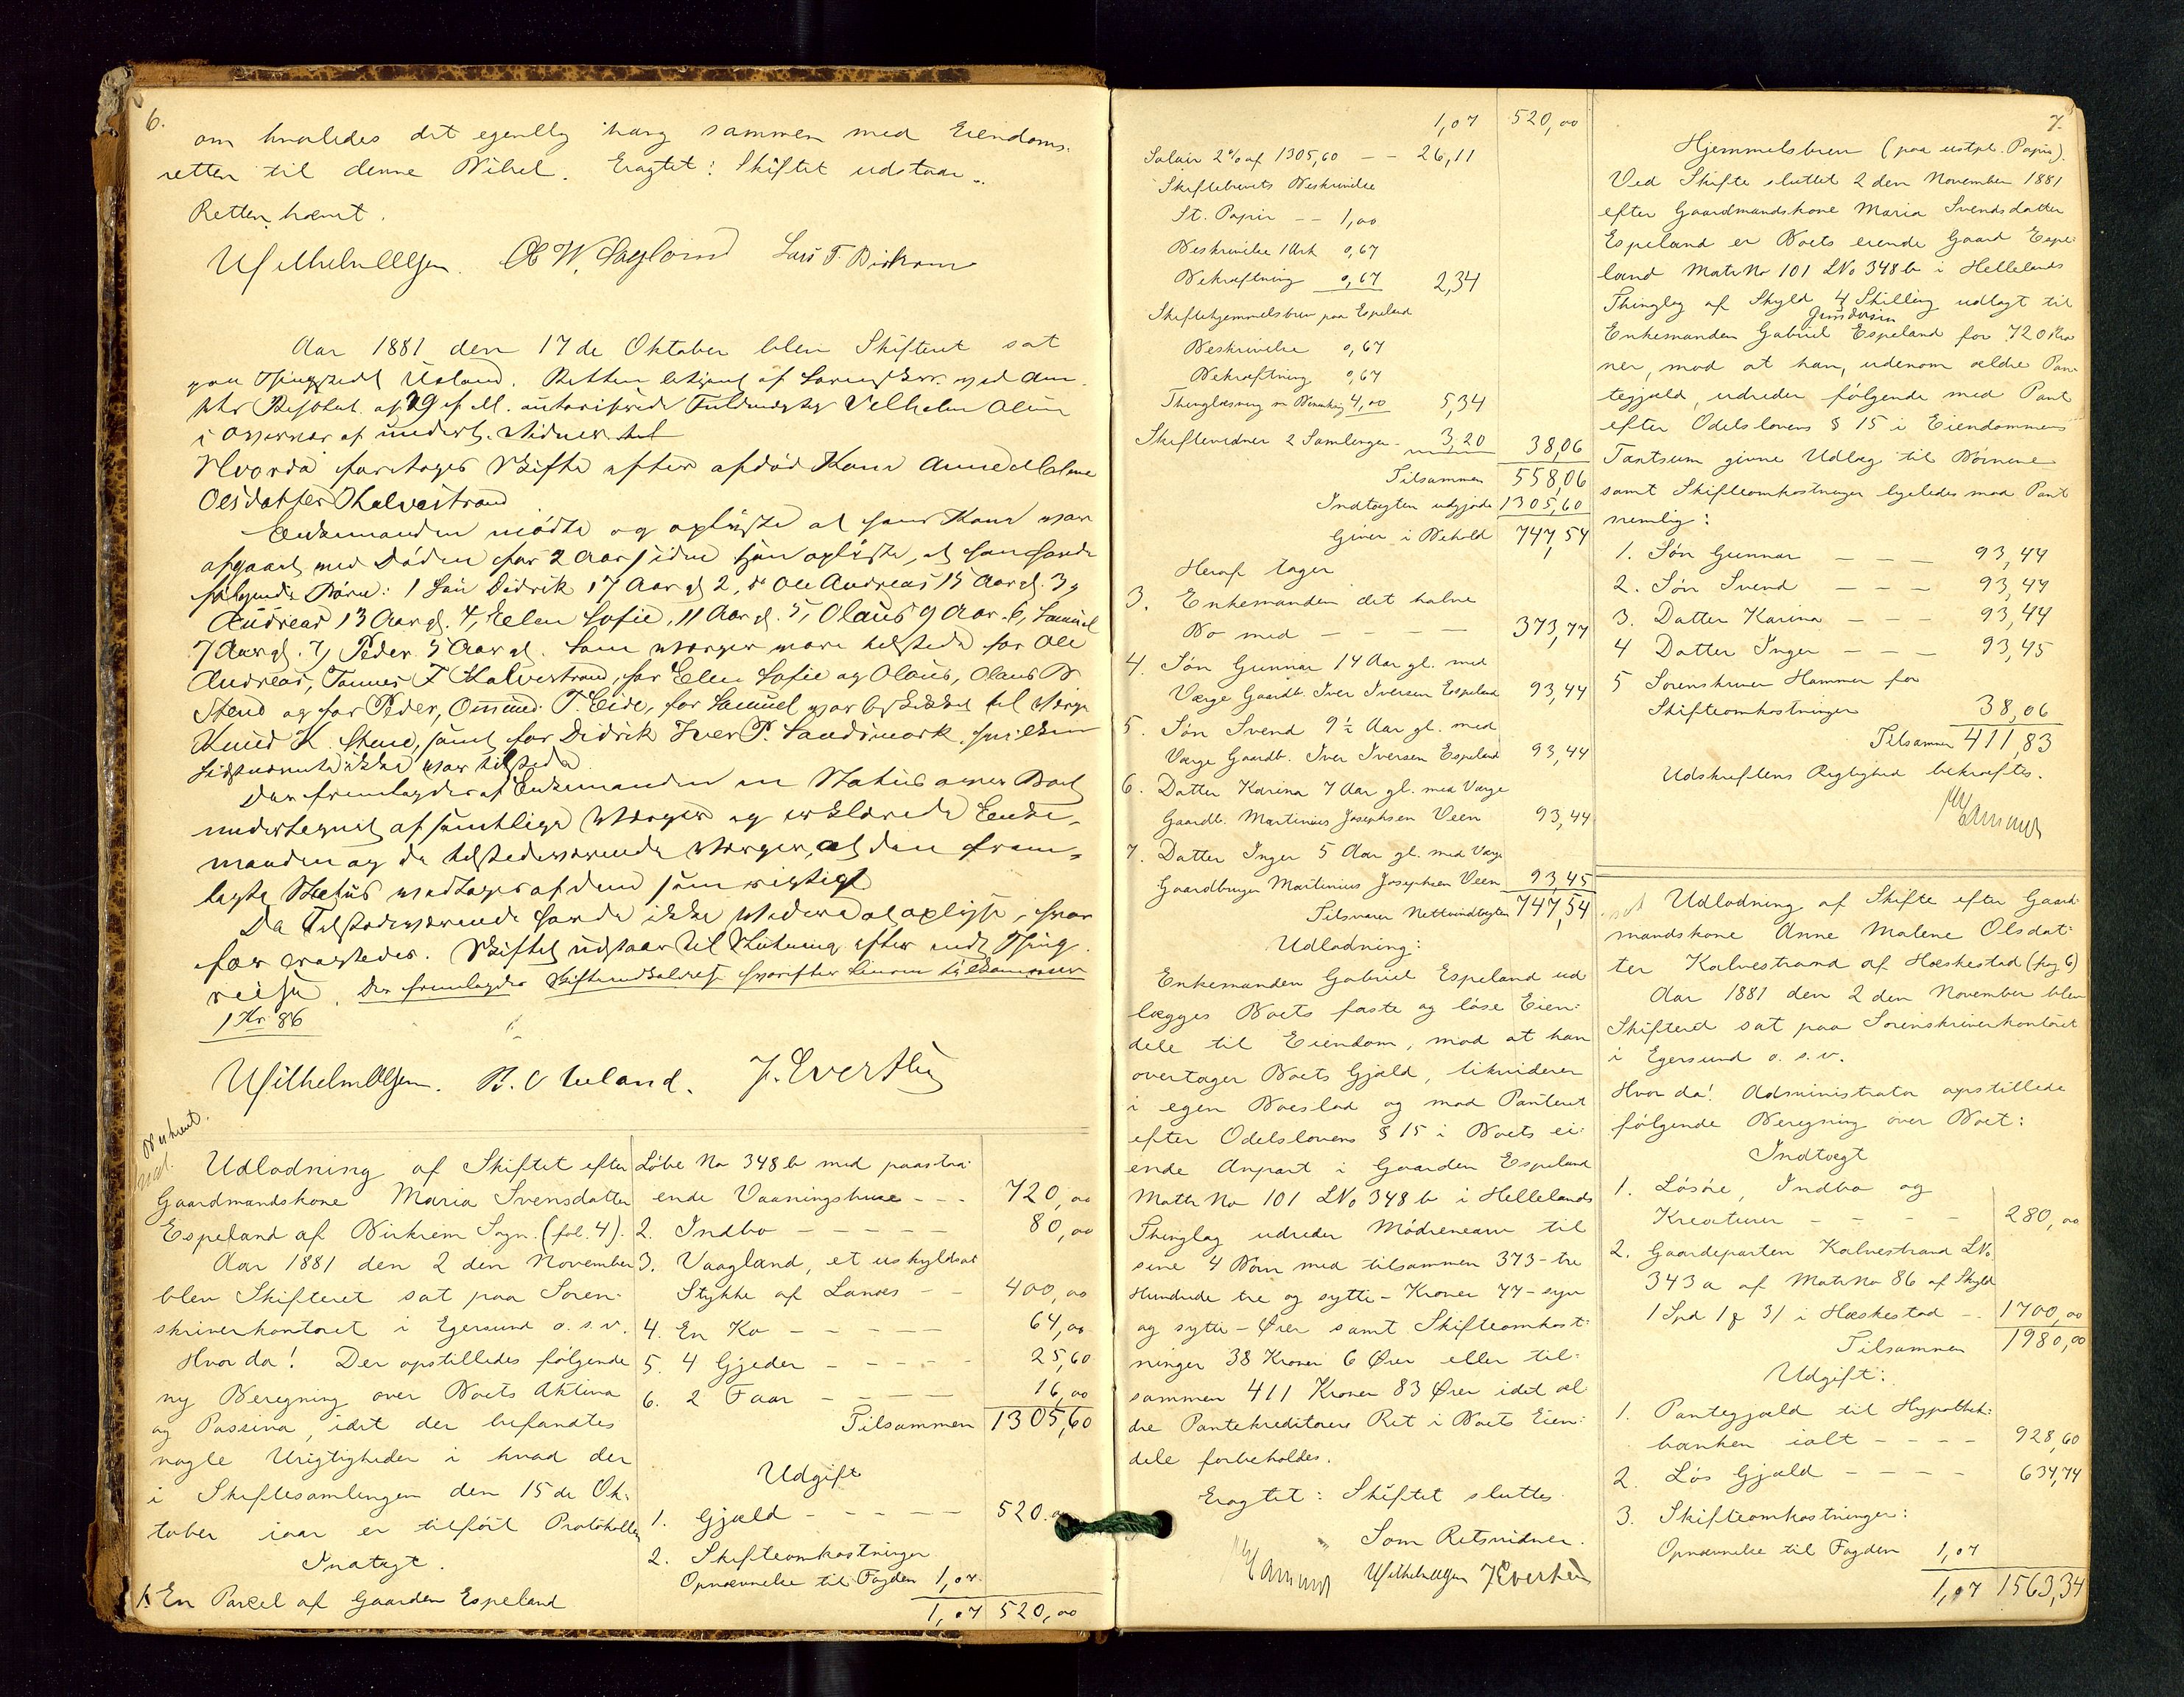 6.
om hvorledes det egentlig hang sammen med Eiendoms-
retten til denne Bibel. Eragtet: Skiftet udstaar.
Retten hævet.
Wilhelm Olsen. Lars T. Birkrem
Aar 1881 den 17de Oktober blev Skifteret sat
paa Thingstedet Ueland. Retten betjent af Sorenskr. ved Am-
autoriserede Fuldmægtig Velhelm Olsen
i Overvær af undert. Vidner.
Hvorda foretoges Skifte efter afdød Kone Anne Malene
Olsdatter Kalvestrand
Enkemanden mødte og oplyste at hans Kone var
afgaaet ved Døden for 2 Aar siden han oplyste, at hun havde
følgende Børn: 1 Søn Didrik 17 Aar gl. 2, Ole Andreas 15 Aar gl. 3,
Andreas 13 Aar gl. 4, Elen Sofie, 11 Aar gl. 5, Olaus 9 Aar. 6, Samuel
7 Aar gl. 7, Peder 5 Aar gl. Som Værger vare tilstede for Ole
Andreas, Tønnes T Kalvestrand, for Elen Sofie og Olaus, Olaus B
Stene og for Peder, Ommund T. Eide, for Samuel var beskikket til Værge
Knud K. Stene, samt for Didrik Iver P. Sandsmark, hvilken
sidstnævnte ikke var tilstede.
Der fremlagdes af Enkemanden en Status over Boet
undertegnet af samtlige Værger og erklærede Enke-
manden og de tilstedeværende Værger, at den frem-
lagte Status vedtages af dem som rigtigt
Da Tilstedeværende havde ikke videre at oplyse, hvor
for eragtedes. Skiftet udstaar til Slutning efter endt Thing-
reise. Der fremlagdes Skifteindkaldelse hvorefter Enken tilkommer
1 Kr 86
Wilhelm Olsen. B. O Ueland. J. Everthy
Beskrevet.
Udlodning af Skiftet efter
Gaardmandskone Maria Svensdatter
Espeland af Birkrem Sogn. (fol. 4).
Aar 1881 den 2den November
blev Skifteret sat paa Soren-
skriverkontoret i Egersund o. s. v.
Hvor da! Der opstilledes følgende
ny Beregning over Boets Aktiva
og Passiva, idet der befandtes
nogle Urigtigheder i hvad der
i Skiftesamlingen den 15de Ok-
tober iaar er tilført Protokollen
Indtægt.
1. En Parcel af Gaarden Espeland
Løbe No 348 b med paastaa-
ende Vaaningshuse - - - 720,00
2. Indbo - - - - - 80,00
3. Vaagland, et uskyldsat
Stykke af Landes - - 400,00
4. En Ko - - - - - 64,00
5. 4 Gjeder - - - - - 25,60
6. 2 Faar - - - - 16,00
Tilsammen 1305,60
Udgift
1. Gjæld - - - - - 520.00
2. Skifteomkostninger
Opnævnelse til Fogden 1,07.
1,07 520,00
1,07 520,00
Salair 2% af 1305,60 - - 26,11
Skiftebrevets Beskrivelse
St. Papir - - 1,00
Beskrivelse 1 Ark 0,67
Bekræftning 0,67 2,34
Skiftehjemmelsbrev paa Espeland
Beskrivelse 0,67
Bekræftning 0,67
Thinglæsning m Bemærkning 4,00 5,34
Skiftevidner 2 Samlinger - 3,20 38,06
Tilsammen 558,06
Indtægten udgjorde 1305,60
Giver i Behold 747,54
Heraf tager
3. Enkemanden det halve
Bo med - - - - 373,77
4. Søn Gunnar 14 Aar gl. med
Værge Gaardb. Iver Iversen Espeland 93,44
5. Søn Svend 9½ Aar gl. med
Værge Gaardb. Iver Iversen Espeland 93,44
6. Datter Karina 7 Aar gl. med Værge
Gaardb. Martinius Josephsen Veen 93,44
7. Datter Inger 5 Aar gl. med Værge
Gaardbruger Martinius Josephsen Veen 93,45
Tilsvarer Nettoindtægten 747,54
Udlodning:
Enkemanden Gabriel Espeland ud
lægges Boets faste og løse Eien-
dele til Eiendom, mod at han
overtager Boets Gjæld, likviderer
i egen Boeslod og mod Panteret
efter Odelslovens § 15 i Boets ei-
ende Anpart i Gaarden Espeland
Matr No 101 LNo 348 b i Hellelands
Thinglag udreder Mødrenearv til
sine 4 Børn med tilsammen 373 - tre
Hundrede tre og sytti - Kroner 77 - syv
og sytti - Ører samt Skifteomkost-
ninger 38 Kroner 6 Ører eller til-
sammen 411 Kroner 83 Ører idet æl
dre Pantekreditorers Ret i Boets Eien-
dele forbeholdes.
Eragtet: Skiftet sluttes.
Som Retsvidner.
Hammer Wilhelm Olsen J Everthy
7.
Hjemmelsbrev (paa ustpl. Papir).
Ved Skifte sluttet 2den November 1881
efter Gaardmandskone Maria Svendsdatter
Espeland er Boets eiende Gaard Espe-
land Matr No 101 LNo 348 b i Hellelands
Thinglag af Skyld 4 Skilling udlagt til
Gundersen
Enkemanden Gabriel Espeland for 720 Kro
ner, mod at han, udenom ældre Pan-
tegjæld, udreder følgende med Pant
efter Odelslovens § 15 i Eiendommens
Taxtsum givne Udlæg til Børnene
samt Skifteomkostninger ligeledes mod Pant
nemlig:
1. Søn Gunnar - - - 93,44
2. Søn Svend - - - 93,44
3. Datter Karina - - - 93,44
4 Datter Inger - - - 93,45
5 Sorenskriver Hammer for
Skifteomkostninger 38,06
Tilsammen 411,83
Udskriftens Rigtighed bekræftes.
Hammer
Udlodning af Skifte efter Gaard-
mandskone Anne Malene Olsdat-
ter Kalvestrand af Hæskestad (pag 6)
Aar 1881 den 2den November blev
Skifteret sat paa Sorenskriverkontoret
i Egersund o. s. v.
Hvor da! Administrator opstillede
følgende Beregning over Boet:
Indtægt
1. Løsøre, Indbo og
Kreaturer - - - - 280,00
2. Gaardeparten Kalvestrand LNo
343 a af Matr No 86 af Skyld
1 Spd 1 ƒ 31 i Hæskestad - 1700,00
Tilsammen 1980,00
Udgift:
1. Pantegjæld til Hypothek-
banken ialt - - - - 928,60
2. Løs Gjæld - - - - 634,74
3. Skifteomkostninger:
Opnævnelse til Fogden 1,07
1,07 1563,34